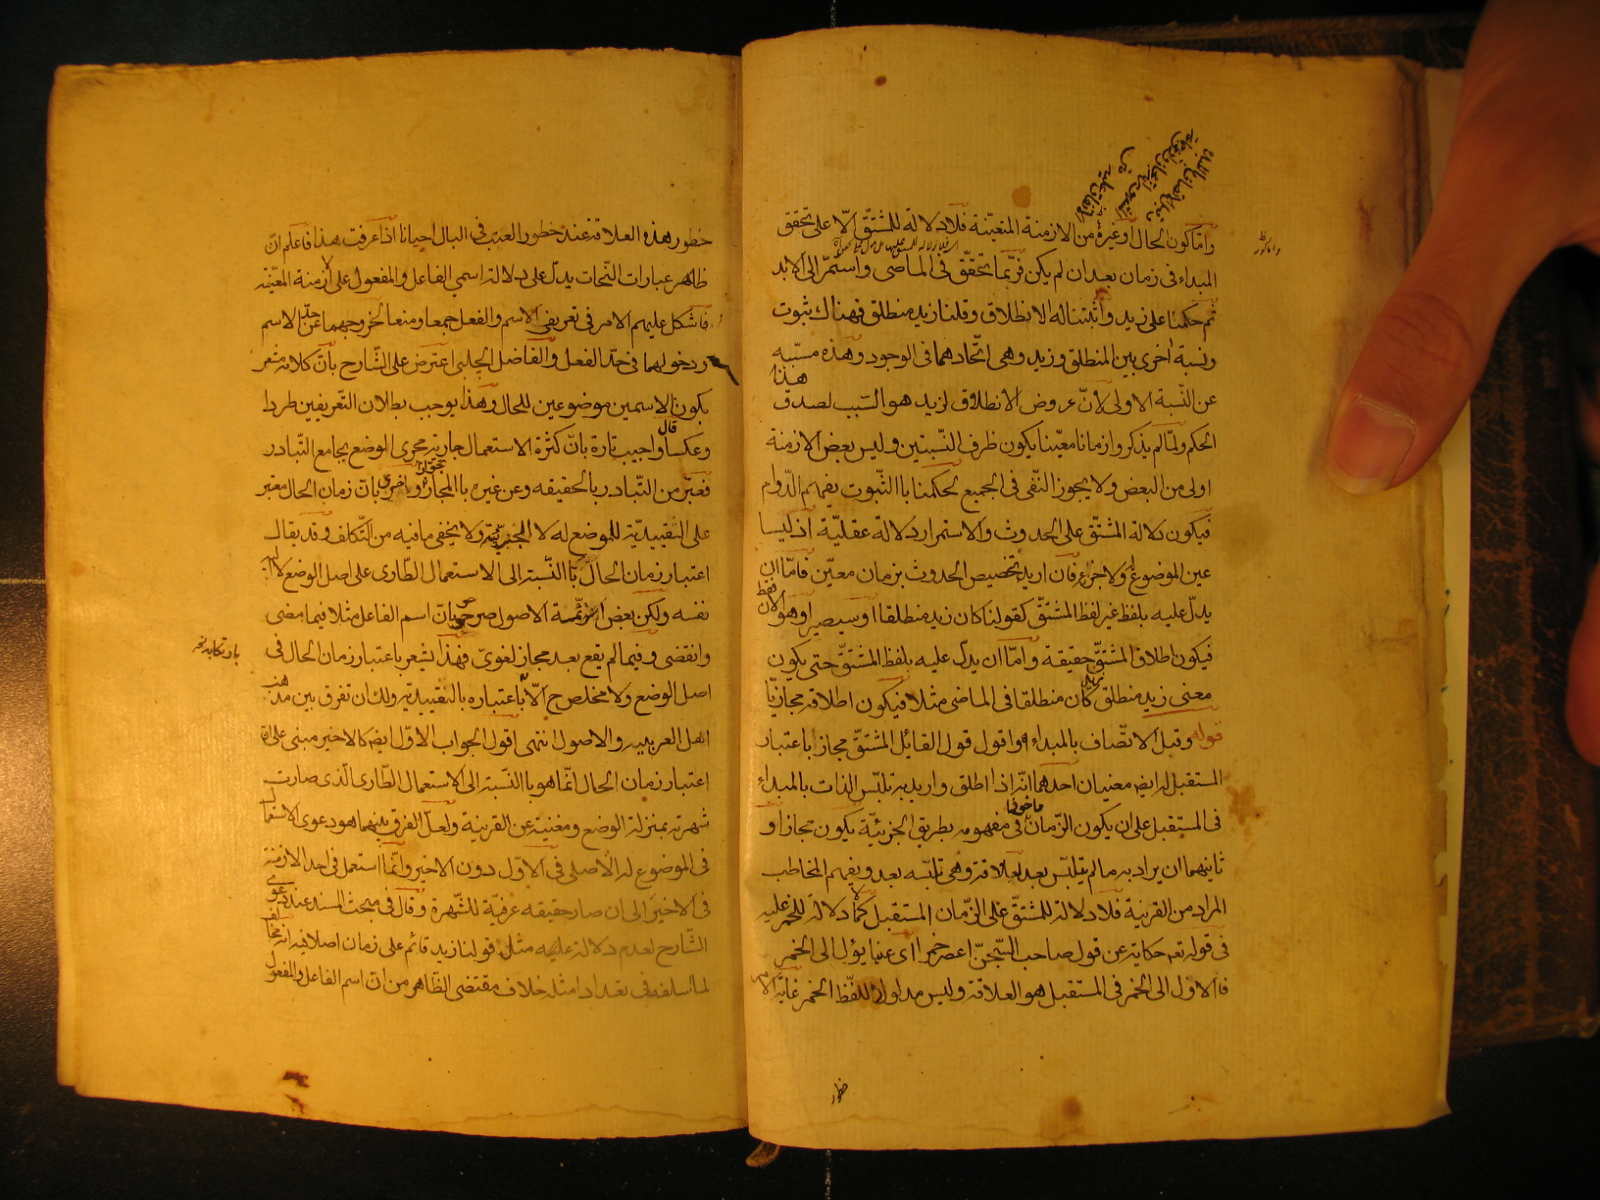 واما كون الحال او غيره من الازمنة المتعيّنة فلا دلالة للمشتقّ الّا على تحقق
المبداء فى زمان بعد ان لم يكن فربّما تحقّق فى الماضى واستمرّ الى الابد
ثم حكمنا على زيد واثبتنا له الانطلاق وقلنا زيد منطلق فهناك ثبوت
ونسبة اخرى بين المنطلق وزيد وهى اتّحادهما فى الوجود وهذه مسبّبه
عن النّسبة الاولى لانّ عروض الانطلاق لزيد هو السّبب لصدق هذا
الحكم ولمّا لم يذكروا زمانا معيّنا يكون ظرف النّسبتين وليس بعض الازمنة
اولى من البعض ولا يجوز النّفى فى الجميع لحكمنا باالثّبوت يفهم الدّوام
فيكون دلالة المشتقّ على الحدوث والاستمرار دلالة عقليّة اذ ليسا
عين الموضوع له ولا جزءه فان اريد تخصيص الحدوث بزمان معيّن فامّا ان
يدلّ عليه بلفظ غير لفظ المشتقّ كقولنا كان زيد منطلقا او سيصير او هو الآن
فيكون اطلاق المشتقّ حقيقة وامّا ان يدلّ عليه بلفظ المشتقّ حتى يكون
معنى زيد منطلق كان زيد منطلقا فى الماضى مثلا فيكون اطلاقه مجازيّا
قوله وقبل الاتّصاف بالمبداء اه واقول قول القائل المشتقّ مجاز باعتبار
المستقبل له ايضا معنيان احدهما انّه اذا اطلق واريد به تلبّس الذات بالمبداء
فى المستقبل على ان يكون الزّمان ماخوذا فى مفهومه بطريق الجزئيّة يكون مجازا و
ثانيهما ان يراد به ما لم يتلبّس بعد لعلاقة وهى تلبّسه بعد ويفهم المخاطب
المراد من القرينة فلا دلالة للمشتقّ على الزّمان المستقبل كما لا دلالة للخمر عليه
فى قوله تعه حكاية عن قول صاحب السّجن اعصر خمرا اى عنبا يؤل الى الخمر
فاالاول الى الخمر فى المستقبل هو العلاقة وليس مدلولا للفظ الخمر غاية الامر
خطور
خطور هذه العلاقة عند خطور العنب فى البال احيانا اذا عرفت هذا فاعلم انّ
ظاهر عبارات النّحات يدلّ على دلالة اسمى الفاعل والمفعول على الازمنة المعيّنة
فاشكل عليهم الامر فى تعريفى الاسم والفعل جمعا ومنعا لخروجهما عن حدّ الاسم
ودخولهما فى حدّ الفعل والفاضل الچلبى اعترض على الشّارح بانّ كلامه مشعر
بكون الاسمين موضوعين للحال وهذا يوجب بطلان التّعريفين طردا
وعكسا قال واجيب تارة بانّ كثرة الاستعمال جارية مجرى الوضع بجامع التّبادر
فعبّر من التّبادر بالحقيقه وعن غيره باالمجاز تجوّزا واخرى بانّ زمان الحال معتبر
على التقييديّة للموضع له لا الجزئيّة ولا يخفى ما فيه من التّكلف وقد يقال
اعتبار زمان الحال باالنّسبة الى الاستعمال الطّارى على اصل الوضع لا اليه
نفسه ولكن بعض ائمّة الاصول صرح بان اسم الفاعل مثلا فيما مضى
وانقضى وفيما لم يقع بعد مجاز لغوىّ فهذا يشعر باعتبار زمان الحال فى
اصل الوضع ولا مخلص ح الّا باعتباره بالتقييديّة ولك ان تفرق بين مذهبى
اهل العربيه والاصول انتهى اقول الجواب الاوّل ايضا كالاخير مبنى على انّ
اعتبار زمان الحال انّما هو باالنّسبة الى الاستعمال الطّارى الّذى صارت
شهرته بمنزلة الوضع ومغنية عن القرينة ولعلّ الفرق بينهما هو دعوى الاستعمال
فى الموضوع له الاصلى فى الاوّل دون الاخير وانّما استعمل فى احد الازمنة
فى الاخير الى ان صار حقيقه عرفيّة للشّهرة وقال فى مبحث المسند عند دعوى
الشّارح لعدم دلالة عليه مثل قولنا زيد قائم على زمان اصلا فيه انّه مخالف
لما اسلفه فى تعداد امثله خلاف مقتضى الظّاهر من انّ اسم الفاعل والمفعول